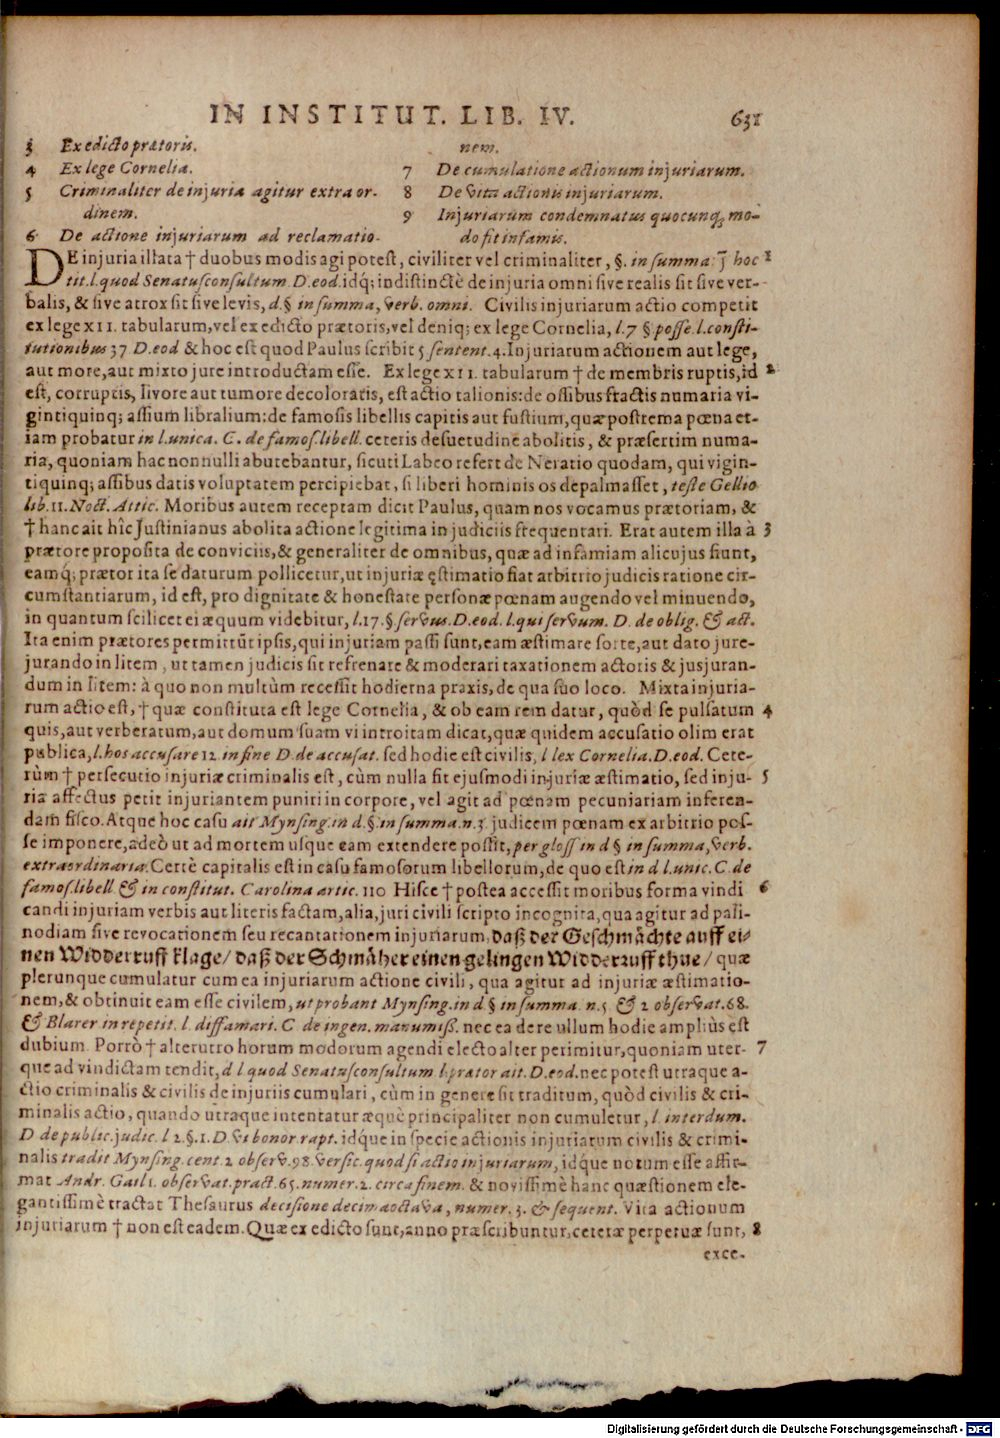 IN INSTITUT. LIB. IV. 631
3 Ex edicto prætoris.
4 Ex lege Cornelia.
5 Criminaliter de injuria agitur extra or-
dinem.
6 De actione injuriarum ad reclamatio-
nem.
7 De cumulatione actionum injuriarum.
8 De vita actionis injuriarum.
9 Injuriarum condemnatus quocunq; mo-
do fit infamis.
DE injuria illata † duobus modis agi potest, civiliter vel criminaliter, §. in summa: ɉ hoc 1
tit. l. quod Senatusconsultum. D. eod. idq́; indistinctè de injuria omni sive realis sit sive ver-
balis, & sive atrox sit sive levis, d. § in summa, verb. omni. Civilis injuriarum actio competit
ex lege XII. tabularum, vel ex edicto prætoris, vel deniq; ex lege Cornelia, l. 7 § posse. l. consti-
tutionibus 37 D. eod & hoc est quod Paulus scribit 5 sentent. 4. Injuriarum actionem aut lege,
aut more, aut mixto jure introductam esse. Ex lege XII. tabularum † de membris ruptis, id 2
est, corruptis, livore aut tumore decoloratis, est actio talionis: de ossibus fractis numaria vi-
gintiquinq; assium libralium: de famosis libellis capitis aut fustium, quæ postrema pœna et-
iam probatur in l. unica. C. de famos. libell. ceteris desuetudine abolitis, & præsertim numa-
ria, quoniam hac nonnulli abutebantur, sicuti Labeo refert de Neratio quodam, qui vigin-
tiquinq; assibus datis voluptatem percipiebat, si liberi hominis os depalmasset, teste Gellio
lib. 11. Noct. Attic. Moribus autem receptam dicit Paulus, quam nos vocamus prætoriam, &
† hanc ait hîc Justinianus abolita actione legitima in judiciis frequentari. Erat autem illa à 3
prætore proposita de conviciis, & generaliter de omnibus, quæ ad infamiam alicujus fiunt,
eamq́; prætor ita se daturum pollicetur, ut injuriæ ęstimatio fiat arbitrio judicis ratione cir-
cumstantiarum, id est, pro dignitate & honestate personæ pœnam augendo vel minuendo,
in quantum scilicet ei æquum videbitur, l. 17. §. servus. D. eod. l. qui servum. D. de oblig. & act.
Ita enim prætores permittũt ipsis, qui injuriam passi sunt, eam æstimare forte, aut dato jure-
jurando in litem, ut tamen judicis sit refrenare & moderari taxationem actoris & jusjuran-
dum in litem: à quo non multùm recessit hodierna praxis, de qua suo loco. Mixta injuria-
rum actio est, † quæ constituta est lege Cornelia, & ob eam rem datur, quòd se pulsatum 4
quis, aut verberatum, aut domum suam vi introitam dicat, quæ quidem accusatio olim erat
publica, l. hos accusare 12. in fine D. de accusat. sed hodie est civilis, l lex Cornelia. D. eod. Cete-
rùm † persecutio injuriæ criminalis est, cùm nulla fit ejusmodi injuriæ æstimatio, sed inju- 5
ria affectus petit injuriantem puniri in corpore, vel agit ad pœnam pecuniariam inferen-
dam fisco. Atque hoc casu ait Mynsing. in d. §. in summa. n. 3. judicem pœnam ex arbitrio pos-
se imponere, adeò ut ad mortem usque eam extendere possit, per gloss in d § in summa, verb.
extraordinaria. Certè capitalis est in casu famosorum libellorum, de quo est in d l. unic. C. de
famos. libell & in constitut. Carolina artic. 110 Hisce † postea accessit moribus forma vindi 6
candi injuriam verbis aut literis factam, alia, juri civili scripto incognita, qua agitur ad pali-
nodiam sive revocationem seu recantationem injuriarum, daß der Geschmächte auff ei-
nen Widderruff klage/ daß der Schmäher einen gelingen Widderruff thue/ quæ
plerunque cumulatur cum ea injuriarum actione civili, qua agitur ad injuriæ æstimatio-
nem, & obtinuit eam esse civilem, ut probant Mynsing. in d § in summa. n. 5. & 2 observat. 68.
& Blarer. in repetit. l. diffamari. C de ingen. manumiß. nec ea de re ullum hodie ampliùs est
dubium. Porrò † alterutro horum modorum agendi electo alter perimitur, quoniam uter- 7
que ad vindictam tendit, d l. quod Senatusconsultum l. prætor ait. D. eod. nec potest utraque a-
ctio criminalis & civilis de injuriis cumulari, cùm in genere sit traditum, quòd civilis & cri-
minalis actio, quando utraque intentatur æquè principaliter non cumuletur, l. interdum.
D de public. judic. l 2. §. 1. D. vi bonor. rapt. idque in specie actionis injuriarum civilis & crimi-
nalis tradit Mynsing. cent. 2 observ. 98. versic. quod si actio injuriarum, idque notum esse affir-
mat Andr. Gail 1. observat. pract. 65. numer. 2. circa finem. & novissimè hanc quæstionem ele-
gantissimè tractat Thesaurus decisione decima octava, numer. 3. & sequent. Vita actionum
injuriarum † non est eadem. Quæ ex edicto sunt, anno præscribuntur, ceteræ perpetuæ sunt, 8
exce-
Digitalisierung gefördert durch die Deutsche Forschungsgemeinschaft - DFG